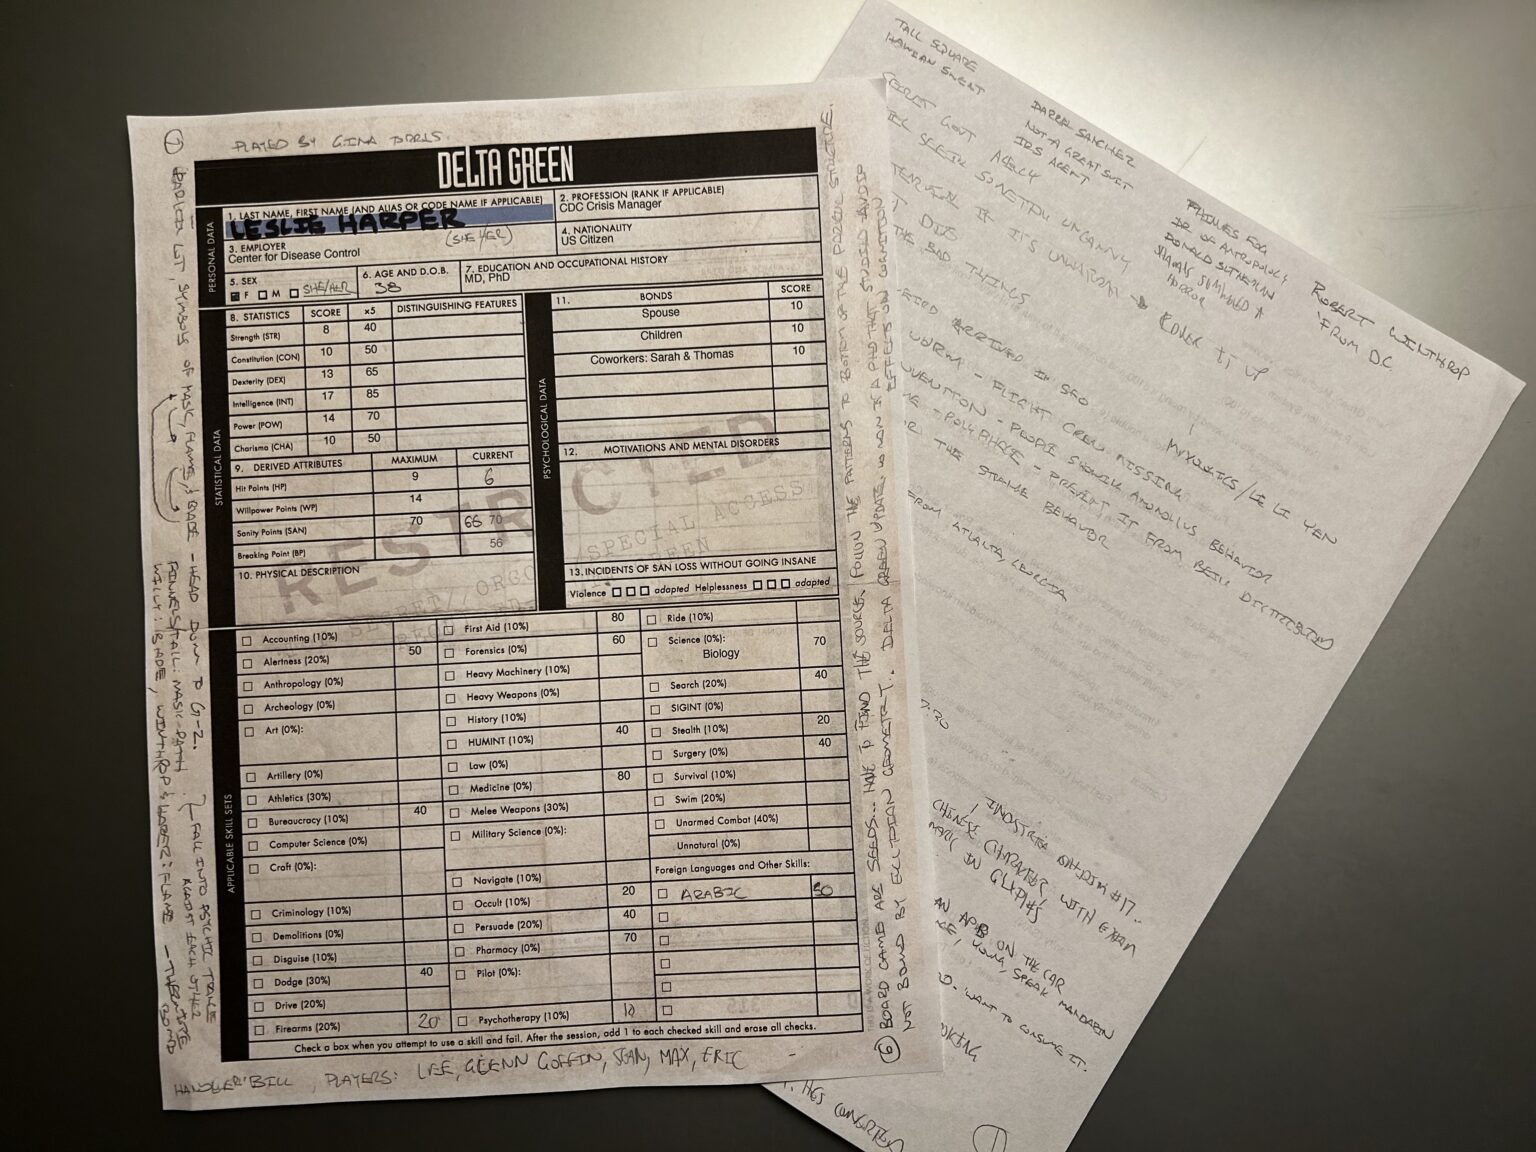 PLAYED BY GINA
DELTA GREEN
PERSONAL DATA
1. LAST NAME, FIRST NAME (AND ALIAS OR CODE NAME IF APPLICABLE)
LESLIE HARPER
(SHE/HER)
2. PROFESSION (RANK IF APPLICABLE)
CDC Crisis Manager
3. EMPLOYER
Center for Disease Control
4. NATIONALITY
US Citizen
5. SEX
F M SHE/HER
6. AGE AND D.O.B.
38
7. EDUCATION AND OCCUPATIONAL HISTORY
MD, PhD
STATISTICAL DATA
8. STATISTICS SCORE x5 DISTINGUISHING FEATURES
Strength (STR) 8 40
Constitution (CON) 10 50
Dexterity (DEX) 13 65
Intelligence (INT) 17 85
Power (POW) 14 70
Charisma (CHA) 10 50
9. DERIVED ATTRIBUTES MAXIMUM CURRENT
Hit Points (HP) 9 6
Willpower Points (WP) 14
Sanity Points (SAN) 70 66 70
Breaking Point (BP) 56
10. PHYSICAL DESCRIPTION
PSYCHOLOGICAL DATA
11. BONDS SCORE
Spouse 10
Children 10
Coworkers: Sarah & Thomas 10
12. MOTIVATIONS AND MENTAL DISORDERS
RESTRICTED
SPECIAL ACCESS
13. INCIDENTS OF SAN LOSS WITHOUT GOING INSANE
Violence adapted Helplessness adapted
APPLICABLE SKILL SETS
Accounting (10%)
Alertness (20%) 50
Anthropology (0%)
Archeology (0%)
Art (0%):
Artillery (0%)
Athletics (30%)
Bureaucracy (10%) 40
Computer Science (0%)
Craft (0%):
Criminology (10%)
Demolitions (0%)
Disguise (10%)
Dodge (30%) 40
Drive (20%)
Firearms (20%) 20
First Aid (10%) 80
Forensics (0%) 60
Heavy Machinery (10%)
Heavy Weapons (0%)
History (10%)
HUMINT (10%) 40
Law (0%)
Medicine (0%) 80
Melee Weapons (30%)
Military Science (0%):
Navigate (10%)
Occult (10%) 20
Persuade (20%) 40
Pharmacy (0%) 70
Pilot (0%):
Psychotherapy (10%) 10
Ride (10%)
Science (0%):
Biology 70
Search (20%) 40
SIGINT (0%)
Stealth (10%) 20
Surgery (0%) 40
Survival (10%)
Swim (20%)
Unarmed Combat (40%)
Unnatural (0%)
Foreign Languages and Other Skills:
ARABIC 50
Check a box when you attempt to use a skill and fail. After the session, add 1 to each checked skill and erase all checks.
HANDLER: BILL, PLAYERS: LEE, GLENN GOFFIN, SEAN, MAX, ERIC
LIT, SYMBOLS OF MASK, FLAME, & BLADE - HEAD DOWN TO G-2.
MASK-PATH
WILLY: BLADE, WINTHROP & HARPER: FLAME
FALL INTO PSYCHIC TRANCE
AGAINST EACH OTHER
6
BOARD GAME ARE SEEDS.. HAVE TO FIND THE SOURCE. FOLLOW THE PATTERNS TO BOTTOM OF THE PRISON STRUCTURE.
NOT BOUND BY EUCLIDIAN GEOMETRY. DELTA GREEN UPDATE: WINN IS A PHD THAT STUDIED AUDIO
EFFECTS ON COGNITION
TALL SQUARE
DARREL SANCHEZ
NOT A GREAT SUIT
IRS AGENT
DR OF ANTROPOLOGY
DONALD SUTHERLAN
HORROR
ROBERT WINTHROP
"FROM D.C.
GOVT AGENCY
SOMETHING UNCANNY
IF IT'S UNNATURAL → COVER IT UP
THE BAD THINGS
ARRIVED IN SFO
WORM - FLIGHT CREW MISSING
PEOPLE SHOWING ANOMOLUS BEHAVIOR
PREVENT IT FROM BEING DISTRIBUTED
THE STRANGE BEHAVIOR
/LE LI YEN
FROM ATLANTA, GEORGIA
7:30
INDUSTRIAL #17..
CHINESE CHARACTER WITH EXTRA
MARK IN GLYPHS
ON THE CAR
YOUNG, SPEAK MANDARIN
WANT TO CONSUME IT.
1